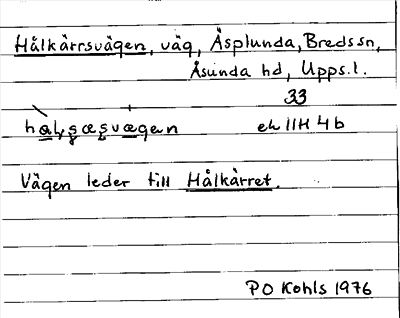 Hålkärrsvägen, väg, Äsplunda, Bredssn,
Åsunda hd, Upps.l.
33
ek 11H 4b
Vägen leder till Hålkärret.
PO Kohls 1976